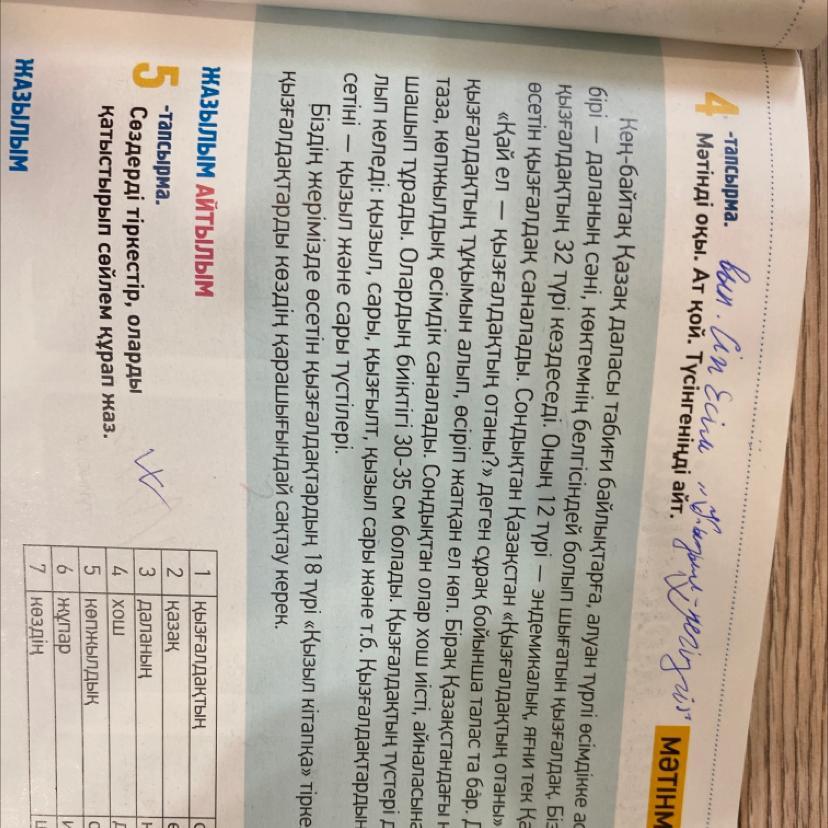 4 -тапсырма.
Мәтінді оқы. Ат қой. Түсінгеніңді айт.
МӘТІНМ
Кең-байтақ Қазақ даласы табиғи байлықтарға, алуан түрлі өсімдікке
бірі – даланың сәні, көктемнің белгісіндей болып шығатын қызғалдақ.
қызғалдақтың 32 түрі кездеседі. Оның 12 түрі – эндемикалық, яғни тек
өсетін қызғалдақ саналады. Сондықтан Қазақстан «Қызғалдақтың отаны»
«Қай ел – қызғалдақтың отаны?» деген сұрақ бойынша талас та бар.
қызғалдақтың тұқымын алып, өсіріп жатқан ел көп. Бірақ Қазақстандағы
таза, көпжылдық өсімдік саналады. Сондықтан олар хош иісті, айналасына
шашып тұрады. Олардың биіктігі 30-35 см болады. Қызғалдақтың түстері
лып келеді: қызыл, сары, қызғылт, қызыл сары және т.б. Қызғалдақтардың
сетіні – қызыл және сары түстілері.
Біздің жерімізде өсетін қызғалдақтардың 18 түрі «Қызыл кітапқа» тірке
қызғалдақтарды көздің қарашығындай сақтау керек.
ЖАЗЫЛЫМ АЙТЫЛЫМ
5 -тапсырма.
Сөздерді тіркестір, оларды
қатыстырып сөйлем құрап жаз.
1 қызғалдақтың
2 қазақ
3 даланың
4 хош
5 көпжылдық
6 жұпар
7 көздің
ЖАЗЫЛЫМ